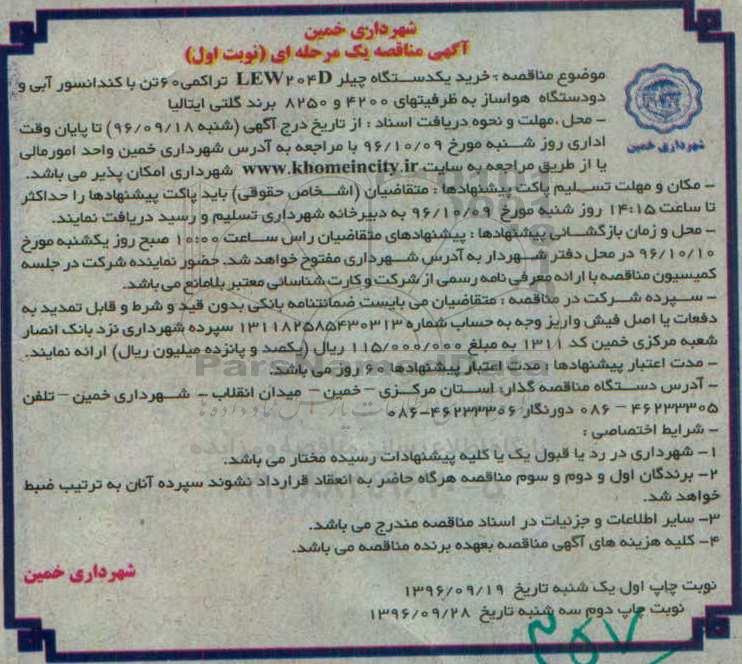 شهرداری خمین
آگهی مناقصه یک مرحله ای (نوبت اول)
موضوع مناقصه : خرید یکدستگاه چیلر LEW۲۰۴D تراکمی۶۰تن با کندانسور آبی و
دودستگاه هواساز به ظرفیتهای ۴۲۰۰ و ۸۲۵۰ برند گلتی ایتالیا
شهرداری خمین
– محل ،مهلت و نحوه دریافت اسناد : از تاریخ درج آگهی (شنبه ۹۶/۰۹/۱۸) تا پایان وقت
اداری روز شنبه مورخ ۹۶/۱۰/۰۹ با مراجعه به آدرس شهرداری خمین واحد امورمالی
یا از طریق مراجعه به سایت www.khomeincity.ir شهرداری امکان پذیر می باشد.
– مکان و مهلت تسلیم پاکت پیشنهادها : متقاضیان (اشخاص حقوقی) باید پاکت پیشنهادها را حداکثر
تا ساعت ۱۴:۱۵ روز شنبه مورخ ۹۶/۱۰/۰۹ به دبیرخانه شهرداری تسلیم و رسید دریافت نمایند.
– محل و زمان بازگشائی پیشنهادها : پیشنهادهای متقاضیان راس ساعت ۱۰:۰۰ صبح روز یکشنبه مورخ
۹۶/۱۰/۱۰ در محل دفتر شهردار به آدرس شهرداری مفتوح خواهد شد. حضور نماینده شرکت در جلسه
کمیسیون مناقصه با ارائه معرفی نامه رسمی از شرکت و کارت شناسائی معتبر بلامانع می باشد.
– سپرده شرکت در مناقصه : متقاضیان می بایست ضمانتنامه بانکی بدون قید و شرط و قابل تمدید به
دفعات یا اصل فیش واریز وجه به حساب شماره ۱۳۱۱۸۲۵۸۵۴۳۰۳۱۳ سپرده شهرداری نزد بانک انصار
شعبه مرکزی خمین کد ۱۳۱۱ به مبلغ ۱۱۵/۰۰۰/۰۰۰ ریال (یکصد و پانزده میلیون ریال) ارائه نمایند.
– مدت اعتبار پیشنهادها : مدت اعتبار پیشنهادها ۶۰ روز می باشد.
– آدرس دستگاه مناقصه گذار: استان مرکزی – خمین – میدان انقلاب – شهرداری خمین – تلفن
۴۶۲۳۳۳۰۵ – ۰۸۶ دورنگار ۴۶۲۳۳۳۰۶-۰۸۶
– شرایط اختصاصی :
۱– شهرداری در رد یا قبول یک یا کلیه پیشنهادات رسیده مختار می باشد.
۲– برندگان اول و دوم و سوم مناقصه هرگاه حاضر به انعقاد قرارداد نشوند سپرده آنان به ترتیب ضبط
خواهد شد.
۳– سایر اطلاعات و جزئیات در اسناد مناقصه مندرج می باشد.
۴– کلیه هزینه های آگهی مناقصه بعهده برنده مناقصه می باشد.
شهرداری خمین
نوبت چاپ اول یک شنبه تاریخ ۱۳۹۶/۰۹/۱۹
نوبت چاپ دوم سه شنبه تاریخ ۱۳۹۶/۰۹/۲۸